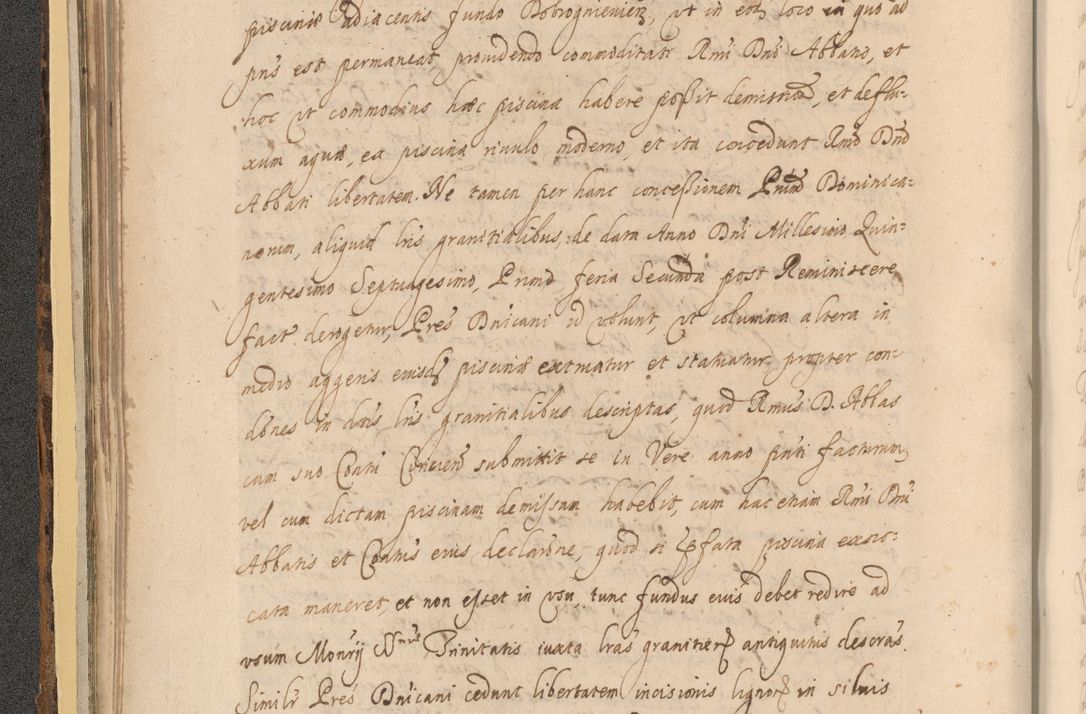 piscinæ adiacentis fundo Dobrognieviens, ut in eod loco in quo ad
pns est permaneat, providendo commoditati Rmi Dni Abbatis, et
hoc ut commodius hæc piscina habere poßit demission, et deflu-
xum aquæ, ex piscina rivulo moderno, et ita concedunt Rmo Dno
Abbati libertatem. Ne tamen per hanc conceßionem Prum Dominica-
norum, aliquid lris granitialibus, de data Anno Dni Millesimo Quin-
gentesimo Septuagesimo, Primo feria Secunda post Reminiscere
fact. derogetur, Pres Dnicani id volunt, ut columna altera in
medio aggeris eiusd piscinæ extruatur et statuatur propter con-
dones in dtis lris granitialibus descriptas, quod Rmus D. Abbas
cum suo Contu Coricien submittit se in Vere anno pnti facturum
vel cum dictam piscinam demißam habebit, cum hac etiam Rmi Dni
Abbatis et Contus eius declarone, quod si pfata piscina exsic-
cata maneret, et non eßet in usu, tunc fundus eius debet redire ad
usum Monrij SSmæ Trinitatis iuxta lras granitier antiquitus descras.
Similr Pres Dnicani cedunt libertatem incisionis lignor in siluis